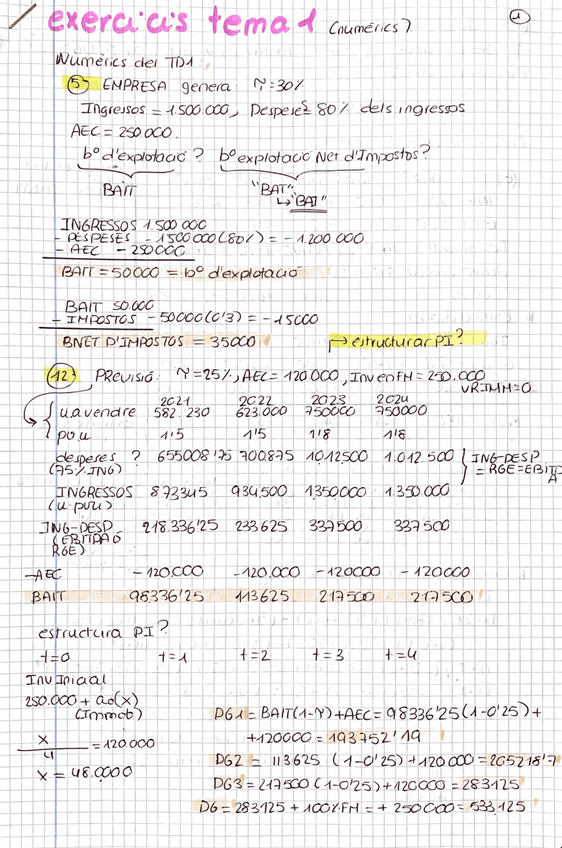 exercicis tema 1 (numèrics)
1
Numèrics del TD1:
5) EMPRESA genera γ=30%
Ingressos = 1.500.000, Despeses 80% dels ingressos
AEC = 250.000.
bº d'explotació? bº explotació Net d'Impostos?
BAIT "BAT"
↳ "BAT"
INGRESSOS 1.500.000
- DESPESES - 1500000(80%) = -1.200.000
- AEC - 250000
BAIT = 50000 = bº d'explotació
BAIT 50.000
- IMPOSTOS - 50000(0'3) = -15000
BNET D'IMPOSTOS = 35000 → estructurar PI?
12) PREVISIÓ: γ=25%, AEC= 120.000, Inv en FM= 250.000
VRIMM=0
2021 2022 2023 2024
u.a vendre 582.230 623.000 750000 750000
pvu 1'5 1'5 1'8 1'8
despeses ? 655008'75 700875 1.012.500 1.012.500 ING-DESP
(75% ING) = RGE=EBITDA
INGRESSOS 873345 934500 1350000 1.350.000
(u·pvu)
ING-DESP 218.336'25 233625 337500 337500
(EBITDA ó
RGE)
-AEC -120.000 -120.000 -120000 -120000
BAIT 98336'25 113625 217500 217500
estructura PI?
t=0 t=1 t=2 t=3 t=4
Inv Iniciaal
250.000 + a0(x)
(Immob)
x/4 = 120.000
x = 48.0000
DG1 = BAIT(1-γ)+AEC = 98336'25(1-0'25)+
+120000 = 193752'19
DG2 = 113625 (1-0'25) +120000 = 205218'7
DG3 = 217500 (1-0'25)+120000 = 283125
DG = 283125 + 100% FM = + 250000 = 533.125